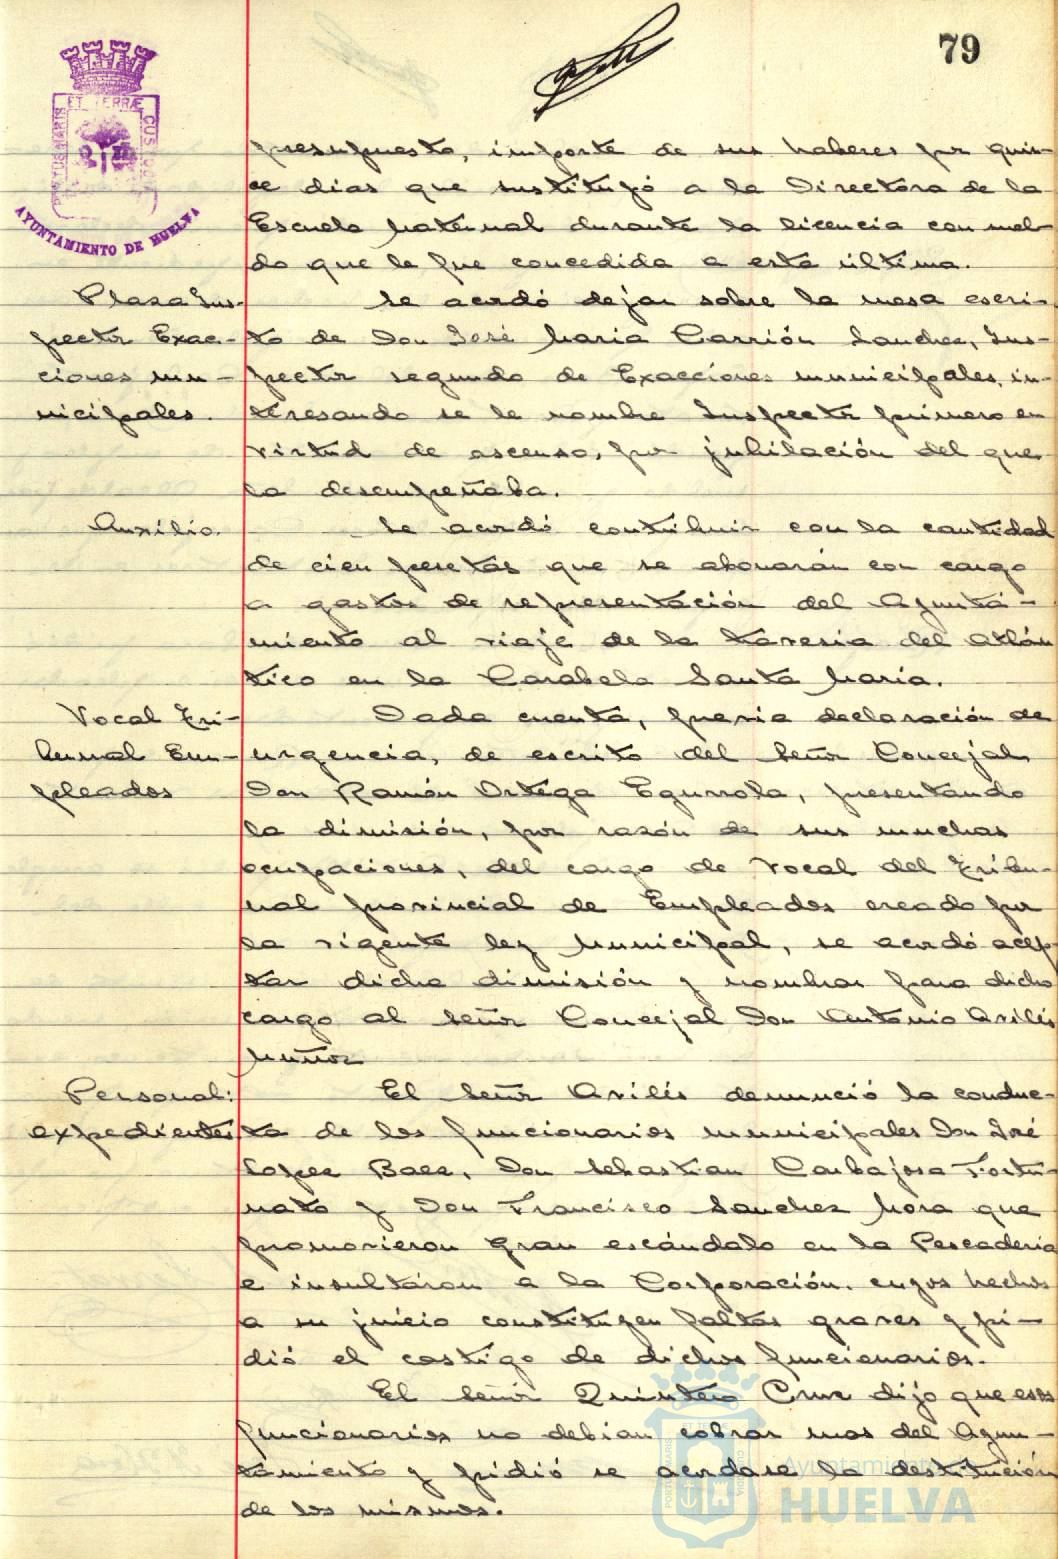 79
ET TERRÆ
PORTUS MARIS
CUSTODIA
AYUNTAMIENTO DE HUELVA
presupuesto, importe de sus haberes por quin-
ce dias que sustituyó a la Directora de la
Escuela Maternal durante la licencia con suel-
do que le fue concedida a esta última.
Plaza Ins-
pector Exac-
ciones mu-
nicipales.
Se acordó dejar sobre la mesa escri-
to de Don José Maria Carrión Sanchez, Ins-
pector segundo de Exacciones municipales, in-
teresando se le nombre Inspector primero en
virtud de ascenso, por jubilación del que
la desempeñaba.
Auxilio.
Se acordó contribuir con la cantidad
de cien pesetas que se abonarán con cargo
a gastos de representación del Ayunta-
miento al viaje de la travesia del Atlán
tico en la Carabela Santa Maria.
Vocal Tri-
bunal Em-
pleados
Dada cuenta, previa declaración de
urgencia, de escrito del Señor Concejal
Don Ramón Ortega Egurrola, presentando
la dimisión, por razón de sus muchas
ocupaciones, del cargo de Vocal del Tribu-
nal provincial de Empleados creado por
la vigente ley Municipal, se acordó acep
tar dicha dimisión y nombrar para dicho
cargo al Señor Concejal Don Antonio Avilés
Muñoz
Personal:
expedientes
El Señor Avilés denunció la conduc-
ta de los funcionarios municipales Don José
Lopez Baez, Don Sebastian Carbajosa Fortu-
nato y Don Francisco Sanchez Mora que
promovieron gran escándalo en la Pescaderia
e insultaron a la Corporación, cuyos hechos
a su juicio constituyen faltas graves y pi-
dió el castigo de dichos funcionarios.
El Señor Quintero Cruz dijo que esos
funcionarios no debian cobrar mas del Ayun-
tamiento y pidió se acordase la destitución
de los mismos.
Ayuntamiento
HUELVA